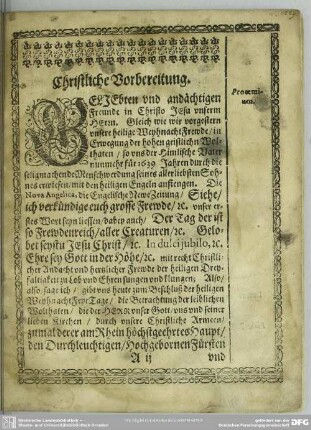 Christliche Vorbereitung.
Prooemium.
GELJEbten vnd andächtigen
Freunde in Christo JEsu vnserm
HErrn. Gleich wie wir vorgestern
vnsere heilige Weyhnacht Freude / in
Erwegung der hohen geistlichen Wol-
thaten / so vns der Himlische Vater
nunmehr für 1639. Jahren durch die
seligmachende Menschwerdung seines allerliebsten Soh-
nes erwiesen / mit den heiligen Engeln anfiengen. Die
Nova Angelica, die Engelische Newe Zeitung / Siehe /
ich verkündige euch grosse Frewde / ꝛc. vnser er-
stes Wort seyn liessen / dabey auch / Der Tag der ist
so Frewdenreich / aller Creaturen / ꝛc. Gelo-
bet seystu JEsu Christ / ꝛc. In dulci jubilo, ꝛc.
Ehre sey Gott in der Höhe / ꝛc. mit recht Christli-
cher Andacht vnd hertzlicher Frewde der heiligen Drey-
faltigkeit zu Lob vnd Ehren sungen vnd klungen; Also /
also sage ich / gibt vns heute zum Beschluß der heiligen
Weyhnacht Frey Tage / die Betrachtung der leiblichen
Wolthaten / die der HERR vnser Gott / vns vnd seiner
lieben Kirchen / durch vnsere Christliche Armeen /
zumal derer am Rhein höchstgeehrtes Haupt /
den Durchleuchtigen / Hochgebornen Fürsten
A ij
vnd